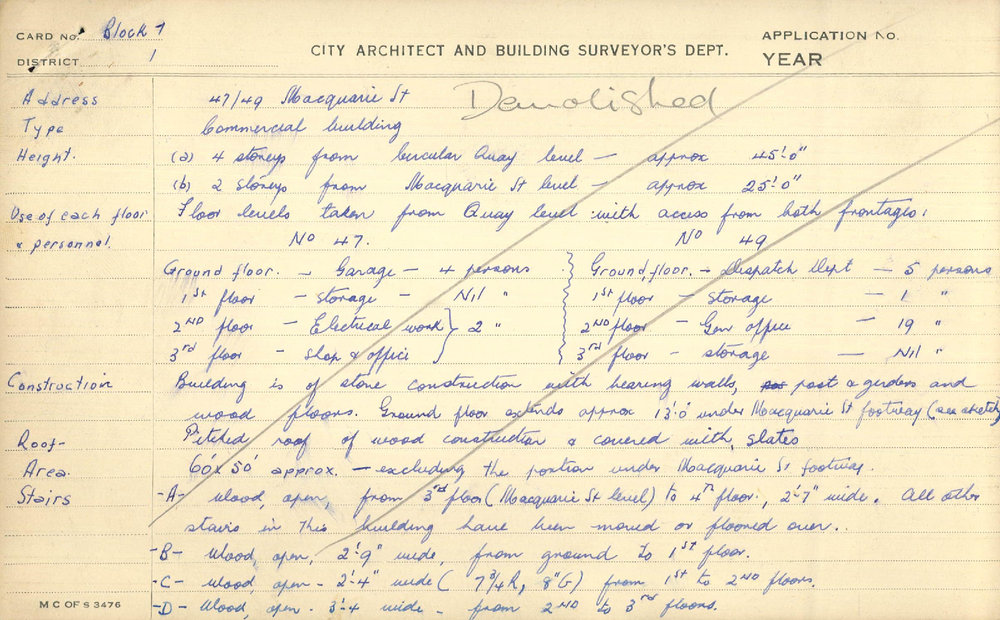 CARD No. Block 7
CITY ARCHITECT AND BUILDING SURVEYOR'S DEPT.
APPLICATION No.
DISTRICT 1
YEAR
Address 47/49 Macquarie St Demolished
Type Commercial building
Height. (a) 4 storeys from Circular Quay level — approx 45'-0"
(b) 2 storeys from Macquarie St level — approx 25'-0"
Use of each floor Floor levels taken from Quay level with access from both frontages:
& personnel. No 47. No 49
Ground floor. — Garage — 4 persons Ground floor. — Dispatch Dept — 5 persons
1st floor — storage — Nil " 1st floor — storage — 1 "
2ND floor — Electrical work } 2 " 2ND floor — Gen office — 19 "
3rd floor — Shop & office 3rd floor — storage — Nil "
Construction Building is of stone construction with bearing walls, post & girders and
wood floors. Ground floor extends approx 13'-0" under Macquarie St footway (see sketch)
Roof- Pitched roof of wood construction & covered with slates
Area. 60' x 50' approx. — excluding the portion under Macquarie St footway.
Stairs -A- Wood, open, from 3rd floor (Macquarie St level) to 4th floor, 2'-7" wide. All other
stairs in this building have been moved or floored over.
-B- Wood, open, 2'-9" wide, from ground to 1st floor.
-C- Wood, open - 2'-4" wide (7 3/4 R, 8" G) from 1st to 2ND floors.
M C OF S 3476 -D- Wood, open - 3'-4 wide - from 2ND to 3rd floors.